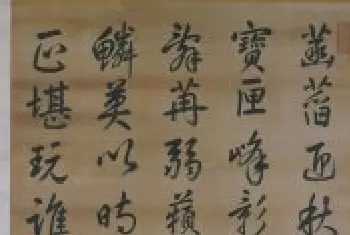 菡萏迎秋
寶匣峰彩
辭苒弱蘋
鱗莫以時
正堪玩誰